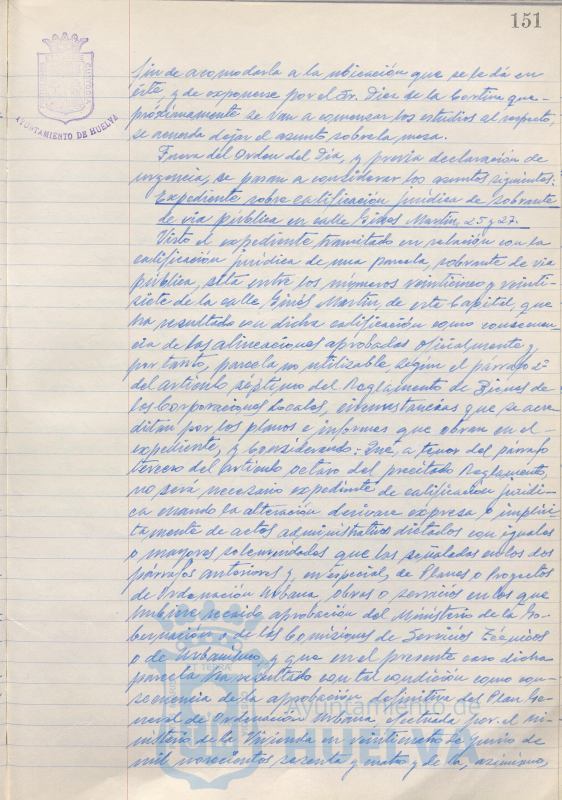 151
AYUNTAMIENTO DE HUELVA
fin de acomodarla a la ubicación que se le dá en
éste, y de exponerse por el Sr. Diaz de la Cortina que
próximamente se van a comenzar los estudios al respecto,
se acuerda dejar el asunto sobre la mesa.
Fuera del Orden del Dia, y previa declaración de
urgencia, se pasan a considerar los asuntos siguientes:
Expediente sobre calificación jurídica de sobrante
de via pública en calle Ginés Martín, 25 y 27.
Visto el expediente tramitado en relación con la
calificación jurídica de una parcela, sobrante de via
pública, sita entre los números veinticinco y veinti-
siete de la calle Ginés Martín, de esta Capital, que
ha resultado con dicha calificación como consecuen-
cia de las alineaciones aprobadas oficialmente y
por tanto, parcela no utilizable, según el párrafo 2º
del artículo séptimo del Reglamento de Bienes de
las Corporaciones Locales, circunstancias que se acre-
ditan por los planos e informes que obran en el
expediente, y Considerando: Que, a tenor del párrafo
tercero del artículo octavo del precitado Reglamento,
no será necesario expediente de calificación jurídi-
ca cuando la alteración derivare expresa o implíci-
tamente de actos administrativos dictados con iguales
o mayores solemnidades que las señaladas en los dos
párrafos anteriores y, en especial, de Planes o Proyectos
de Ordenación Urbana, obras o servicios en los que
hubiere recaido aprobación del Ministerio de la Go-
bernación o de las Comisiones de Servicios Técnicos
o de Urbanismo, y que en el presente caso dicha
parcela ha resultado con tal condición como con-
secuencia de la aprobación definitiva del Plan Ge-
neral de Ordenación Urbana, efectuada por el Mi-
nisterio de la Vivienda en veinticuatro de Junio de
mil novecientos sesenta y cuatro y de la, asimismo,
Ayuntamiento de
HUELVA